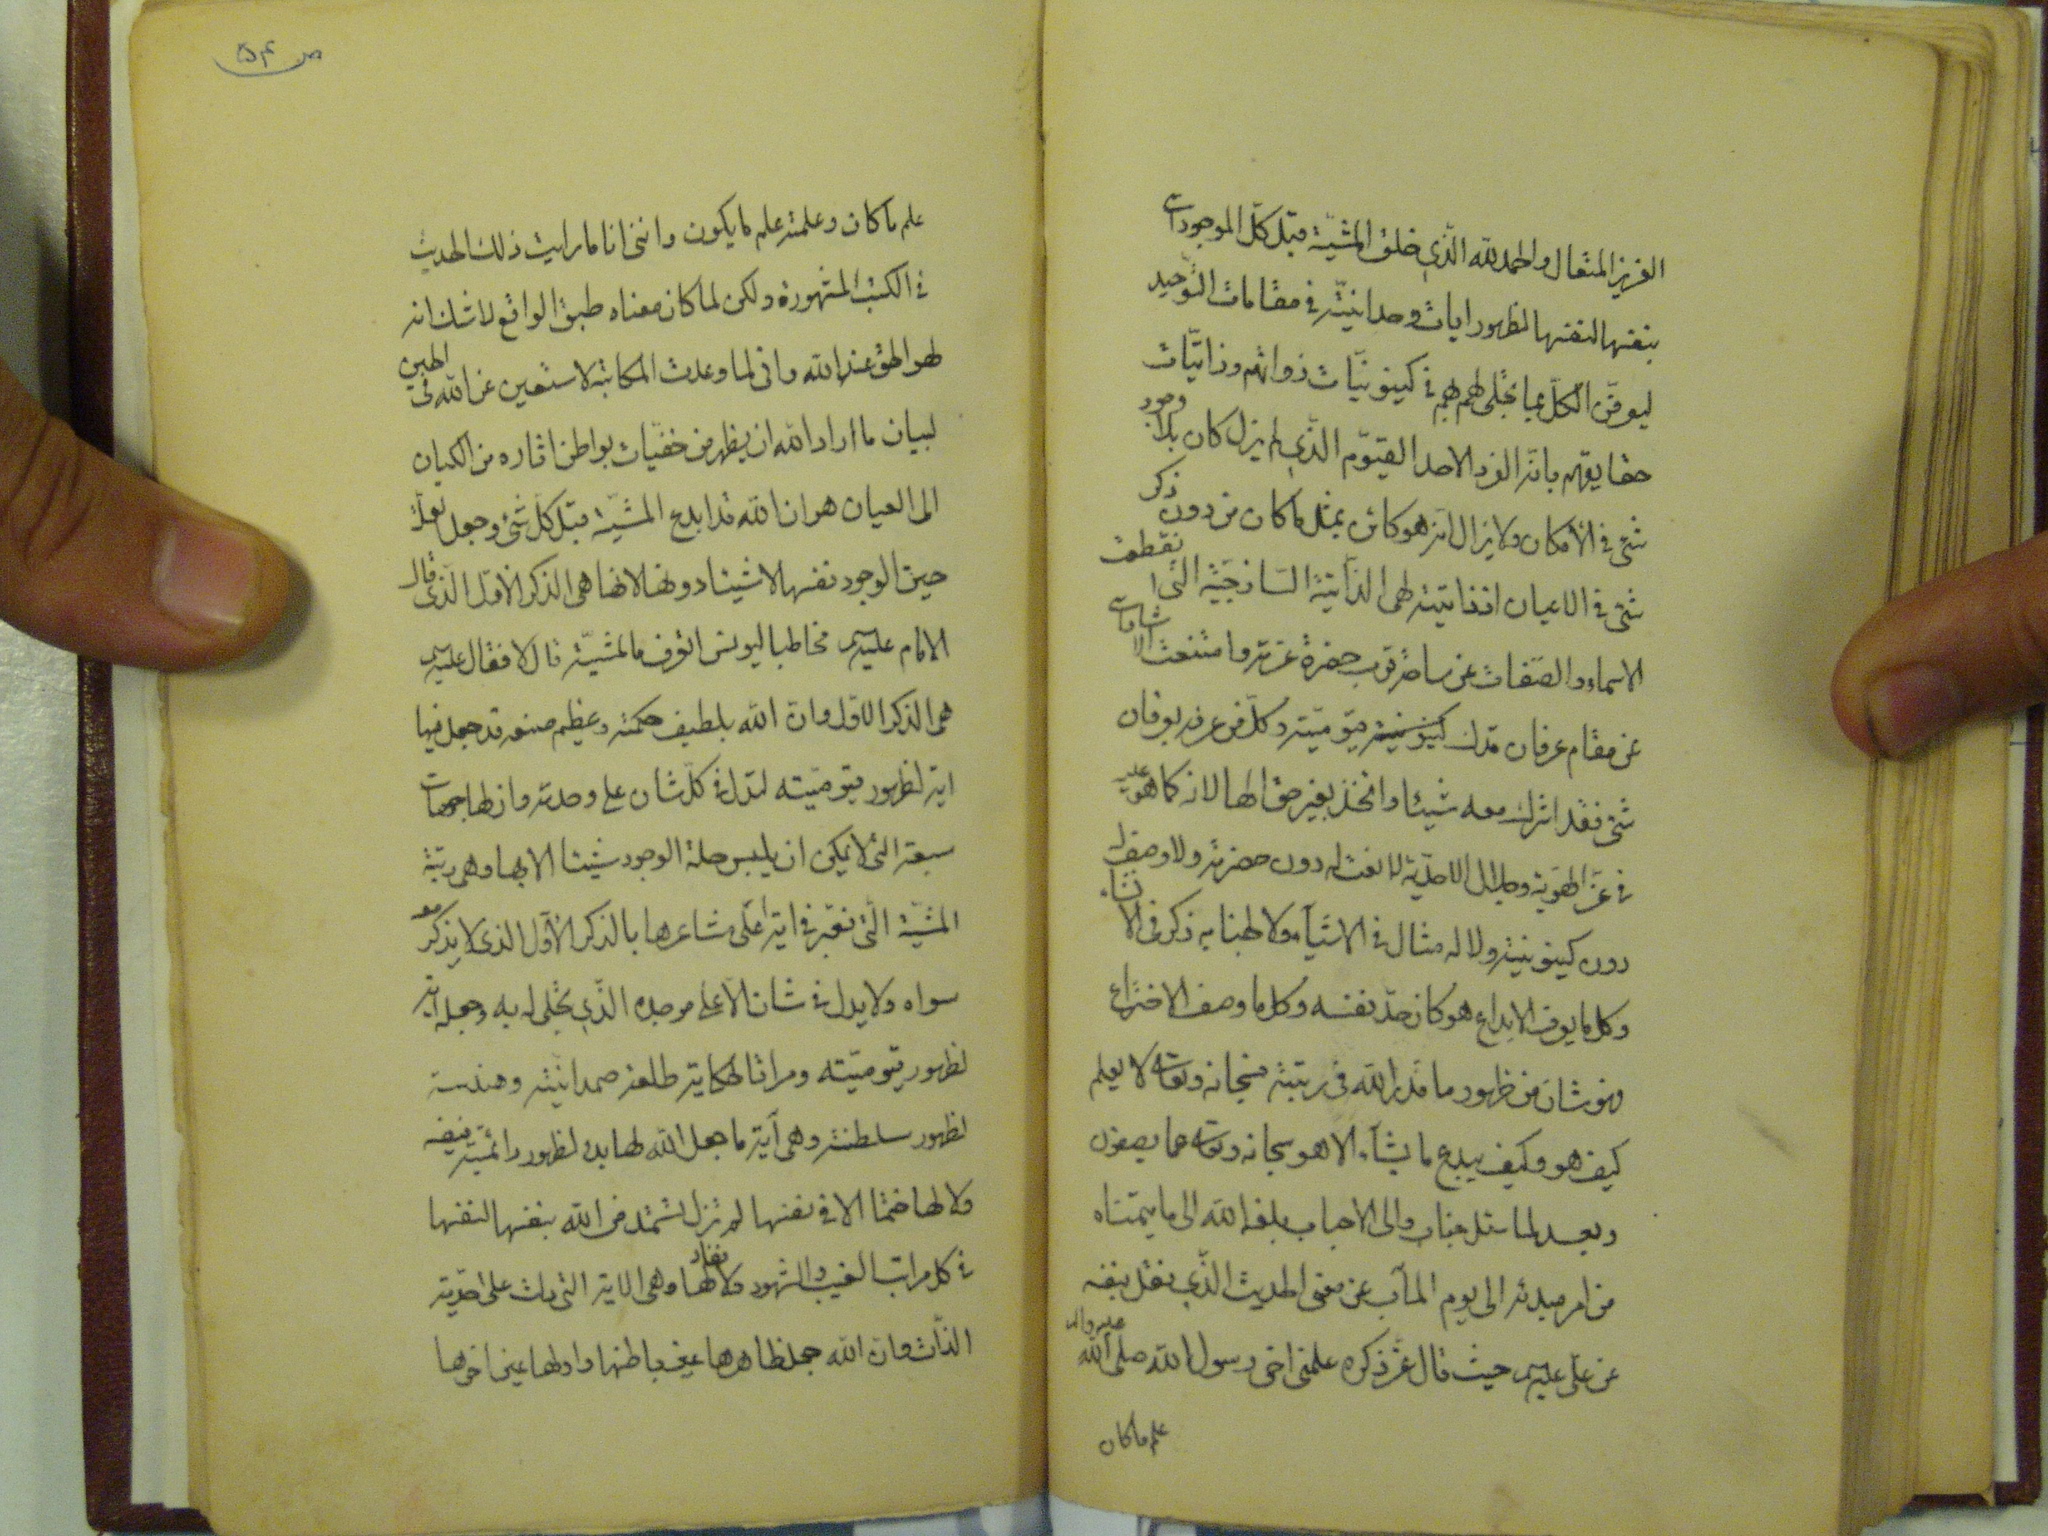 العزيز المتعال والحمد لله الذي خلق المشية قبل كل الموجودات
بنفسها لنفسها لظهور ايات وحدانيته في مقامات التوحيد
ليوقن الكل بما تجلى لهم بهم في كينونيات ذواتهم وذاتيات
حقايقهم بانه الفرد الاحد القيوم الذي لم يزل كان بلا وجود
شئ في الامكان ولا يزال انه هو كائن بمثل ما كان من دون ذكر
شئ في الاعيان اذ ذاتيته لهى الذاتية الساذجية التي انقطعت
الاسماء والصفات عن ساحة قرب حضرة عزته وامتنعت الاشارات
عن مقام عرفان قدك كينونيته قيوميته وكل من عرفه بعرفان
شئ فقد اشرك معه شيئا واتخذ بغير حق الها لانه كما هو عليه
في عز الهوية وجلال الاحدية لا نعت له دون حضرته ولا وصف له
دون كينونيته ولا له مثال في الاشياء ولا لجنابه ذكر في الانشاء
وكلما يعرف الابداع هو كان حد نفسه وكل ما وصف الاختراع
فهو شان من ظهور ما قدر الله في رتبته سبحانه وتعالى لا يعلم
كيف هو وكيف يبدع ما يشاء الا هو سبحانه وتعالى عما يصفون
وبعد لما سئل جناب والى الاحباب بلغه الله الى ما يتمناه
من امر مبدئه الى يوم المآب عن معنى الحديث الذي نقل بنفسه
عن علي عليه السلم حيث قال عز ذكره علمني اخي رسول الله صلى الله عليه واله
علم ما كان
ص ۵۴
علم ما كان وعلمته علم ما يكون وانني انا ما رايت ذلك الحديث
في الكتب المشهورة ولكن لما كان معناه طبق الواقع لا شك انه
لهو الحق عند الله واني لما وعدت المكاتبة لاستعين عن الله في الحين
لبيان ما اراد الله ان يظهر من خفيات بواطن اثاره من الكيان
الى العيان هو ان الله قد ابدع المشية قبل كل شئ وجعل لعلة
حين الوجود نفسها لا شيئا دونها لانها هى الذكر الاول الذي قال
الامام عليه السلم مخاطبا ليونس اتعرف ما المشية قال لا فقال عليه السلم
هى الذكر الاول وان الله بلطيف حكمته وعظيم صنعه قد جعل فيها
اية لظهور قيوميته لتدل في كل شان على وحدته وان لها جهات
سبعة التي لا يمكن ان يلبس حلة الوجود شيئا الا بها وهى رتبة
المشية التي تعبر في اية اعلى مشاعرها بالذكر الاول الذي لا يذكر معه
سواه ولا يدل في شان الا على موجده الذي تجلى له به وجعله اية
لظهور قيوميته ومراتا لحكاية طلعة صمدانيته وهندسة
لظهور سلطنته وهى آية ما جعل الله لها بدء لظهور دائميته فيضه
ولا لها ختما الا في نفسها لم تزل تستمد من الله بنفسها لنفسها
في كل مراتب الغيب والشهود ولا لها نفاد وهى الاية التي دلت على احدية
الذات وان الله جعل ظاهرها عين باطنها واولها عين اخرها